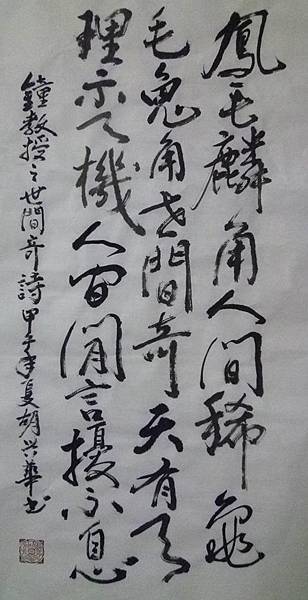 鳳毛麟角人間稀龜
毛兔角世間奇天有天
理示天機人因閒言擾不息
鐘教授之世間奇詩甲午年夏胡興華书